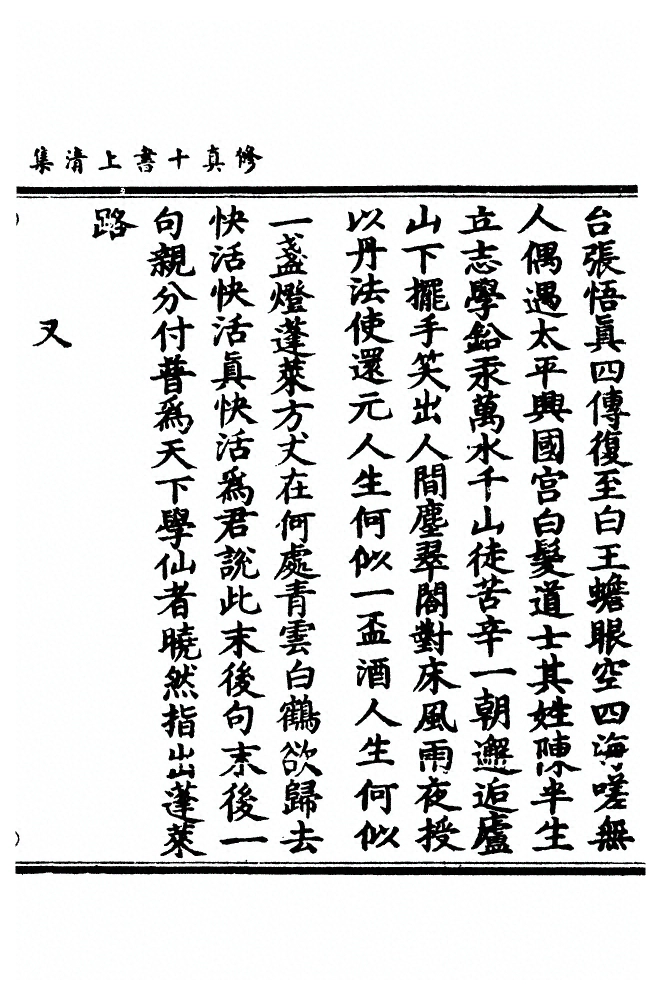 修真十書上清集
台張悟眞四傳復至白王蟾眼空四海嗟無
人偶遇太平興國宮白髮道士其姓陳半生
立志學鉛汞萬水千山徒苦辛一朝邂逅廬
山下擺手笑出人間塵翠閣對床風雨夜授
以丹法使還元人生何似一盃酒人生何似
一盞燈蓬萊方丈在何處青雲白鶴欲歸去
快活快活眞快活爲君說此末後句末後一
句親分付普爲天下學仙者曉然指出蓬萊
路
又